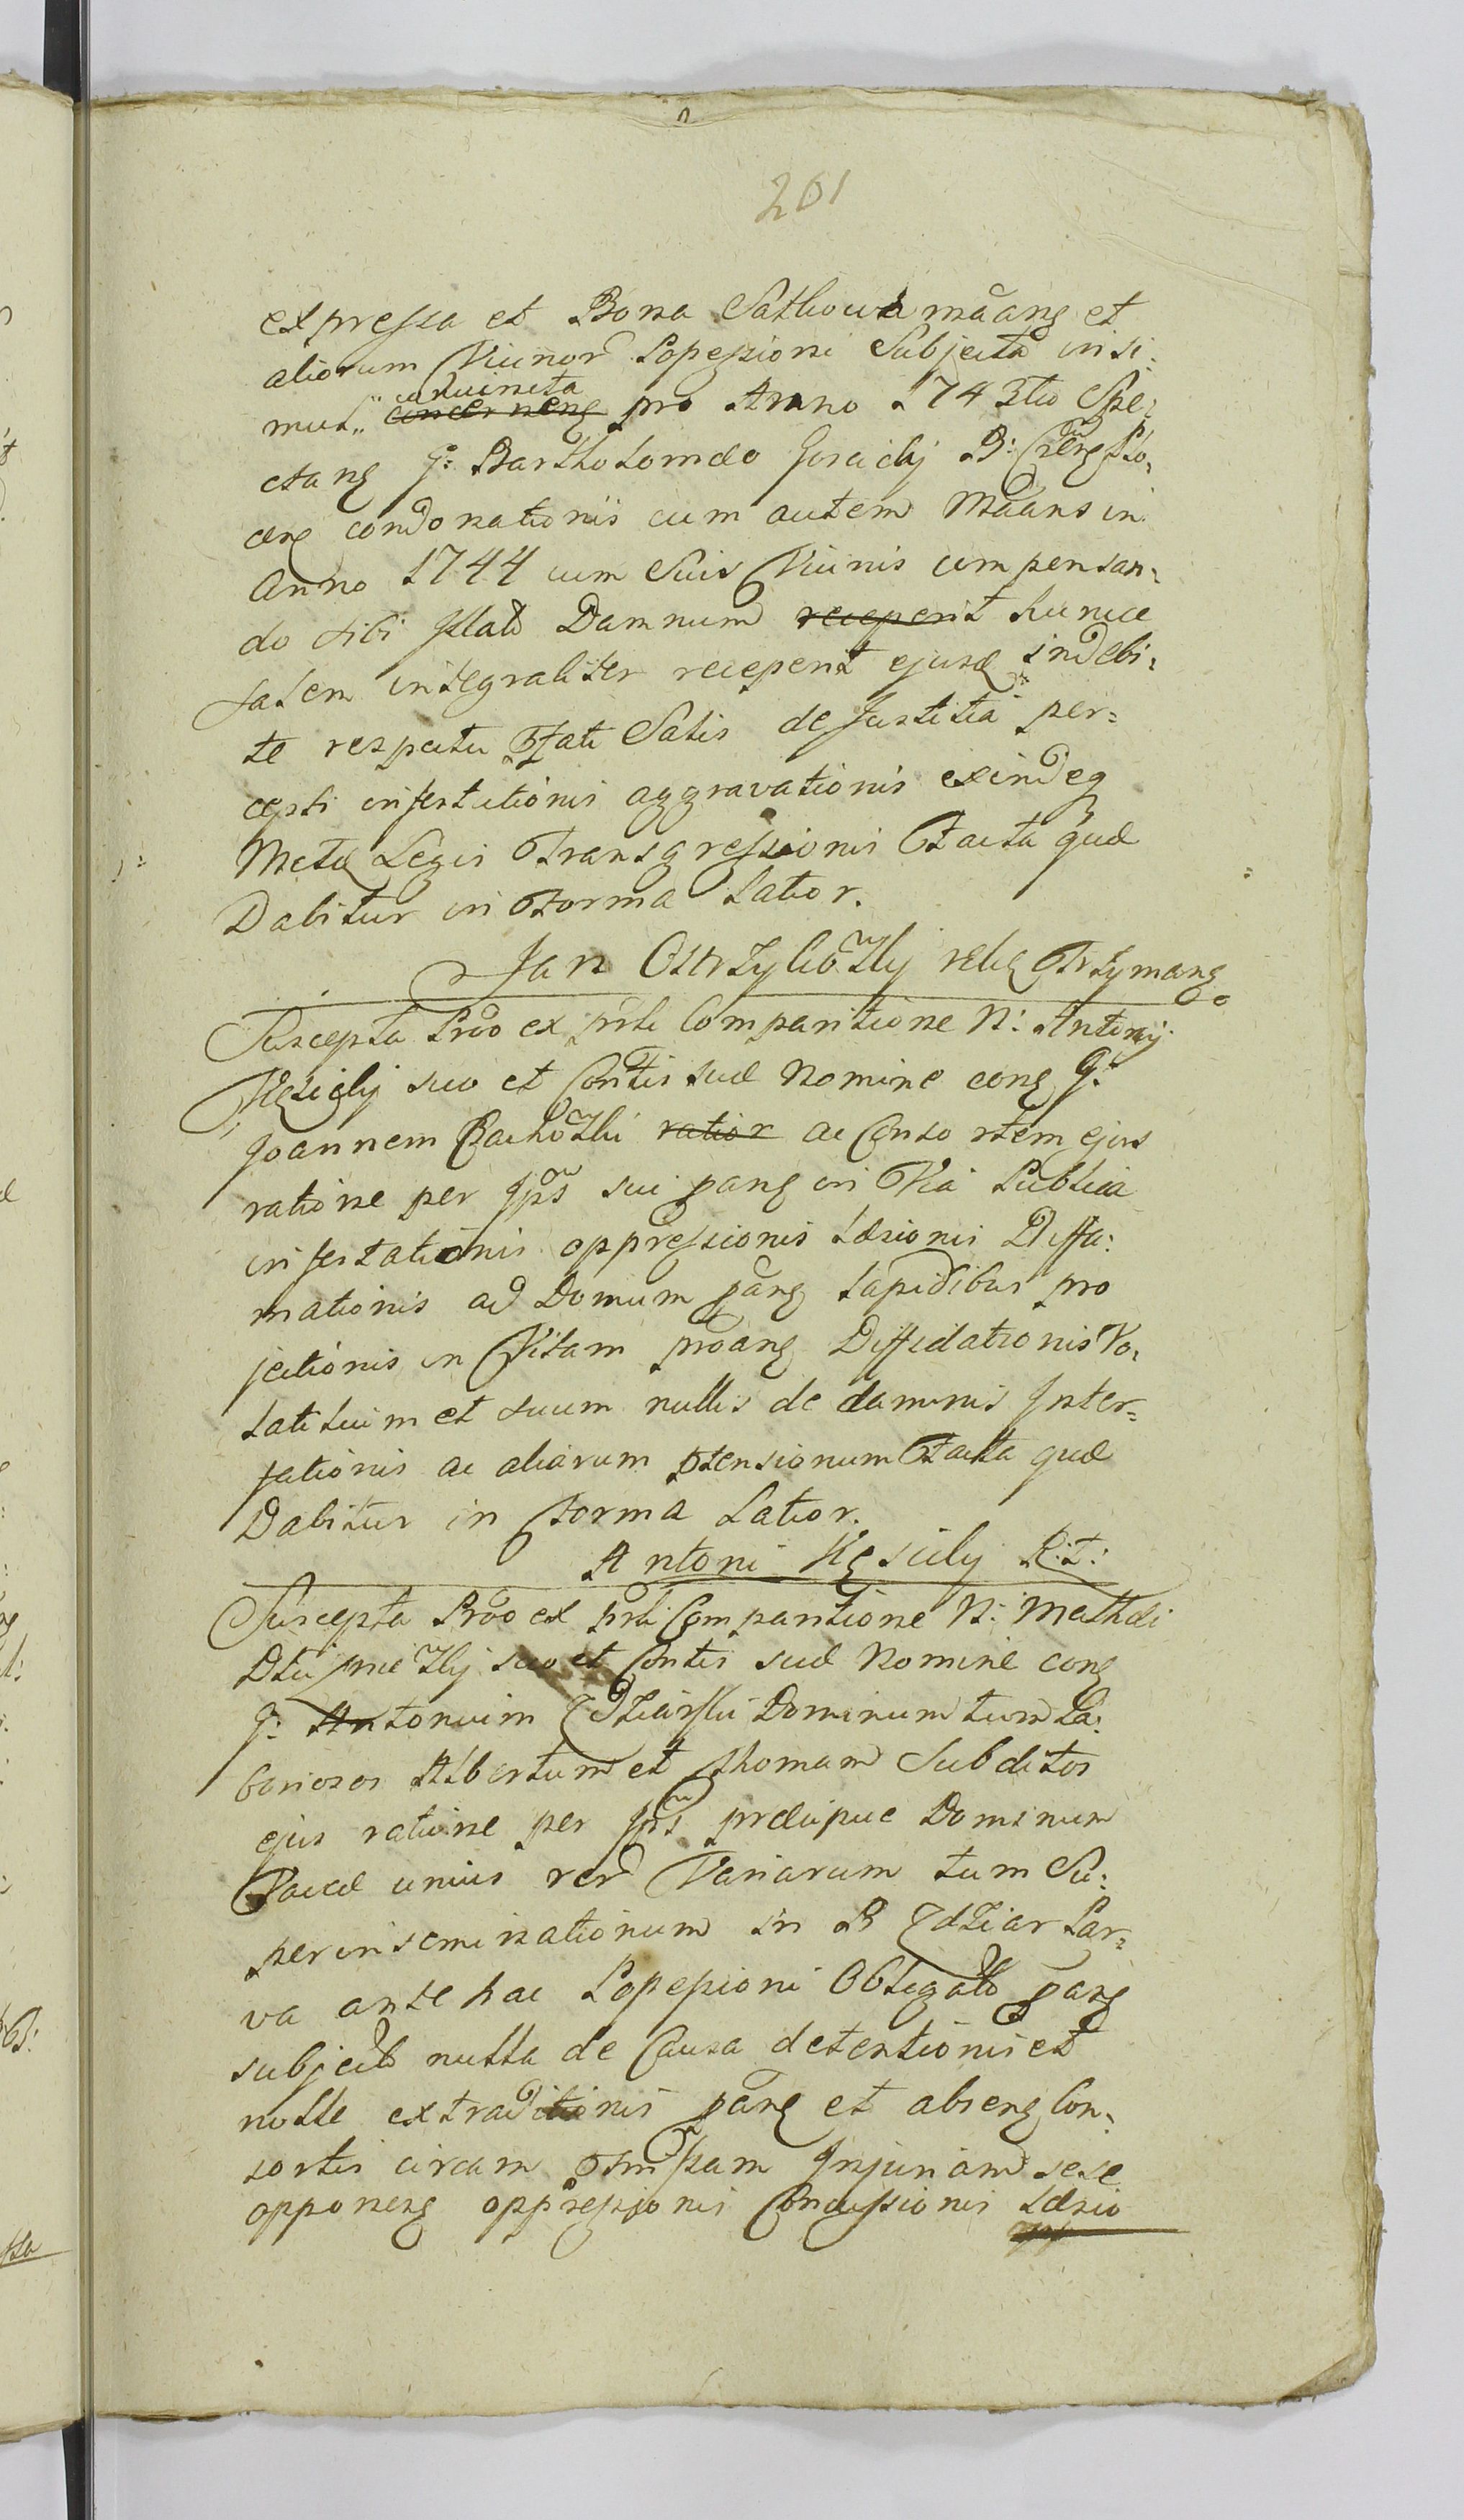 201
expressa et Bona Sathowa mãang et
aliorum Vicinor Possessioni Subjecta in si:
mul convincta concerneng pro Anno 1743tio Spe:
ctang G: Bartholomæo Goscicky B: Creng Plo:
ceng condonationis cum autem Mãans in
Anno 1744 cum Suis Vicinis compensan:
do sibi Illato Damnum receperit hunce
satem integraliter receperit ejusq indebi:
te respectu Ptati Satis de Justitia per:
cepti infestationis aggravationis exindeq
Metæ Legis Transgressionis Facta quæ
Dabitur in Forma Latior.
Jan Ostrzykowsky ręką Trzymang
Suscepta Prõo ex prti Comparitione N: Antonij
Kęsickij suo et Contis suæ Nomine cong G:
Joannem Rachowski ratior ac Consortem ejus
ratione per Ipos sui pang in Via Publica
infestationis oppressionis Læsionis Diffa:
mationis ad Domum pang Lapidibus pro
jectionis in Vitam prõang Diffidationis Vo:
latilium et suum nullis de damnis Inter:
fationis ac aliarum ptensionum Facta quæ
Dabitur in Forma Latior.
Antoni Kęsicky R:T:
Suscepta Prõo ex prti Comparitione N: Mathæi
suo et Contis suæ Nomine cong
G: Antonium Zdziarski Dominum tum La:
boriosos Albertum et Thomam Subditos
ejus ratione per Ipos præcipue Dominum
Vaccæ unius rer Variarum tum Su:
perinseminationum in B Zdziar Par:
va ante hac Possessioni Obligato pang
subjecto nulla de Causa detentionis et
nolle extraditionis pang et abseng Con:
sortis circam Injuriam sese
opponeng oppressionis Concussionis Læsio